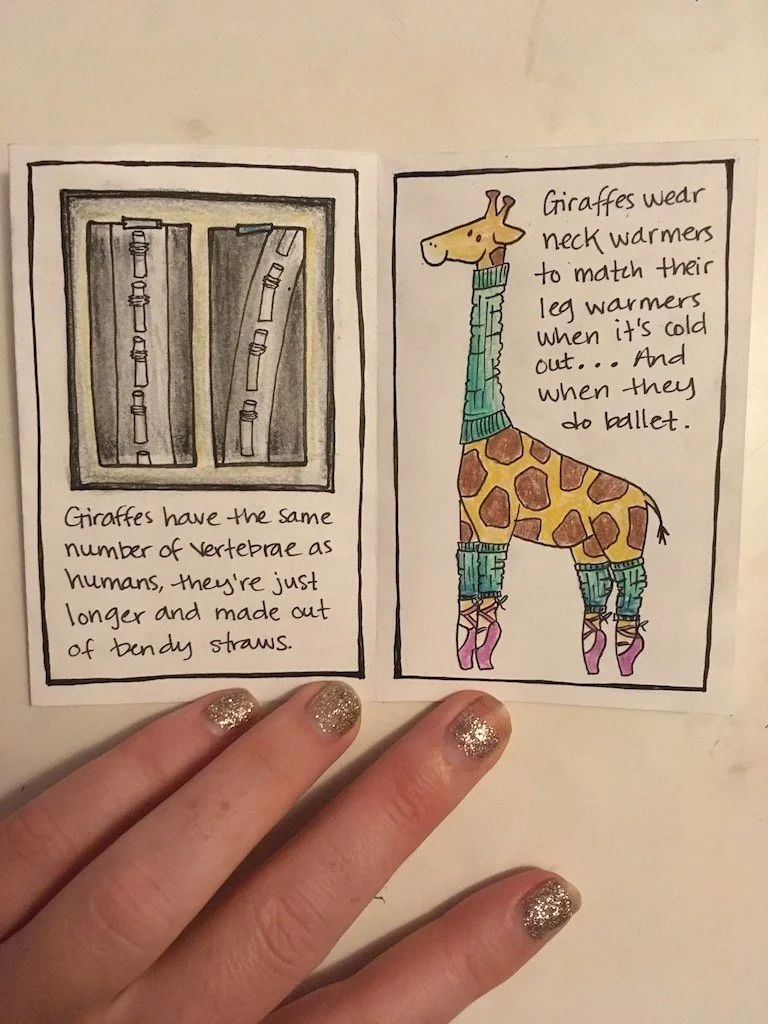 Giraffes have the same
number of vertebrae as
humans, they're just
longer and made out
of bendy straws.
Giraffes wear
neck warmers
to match their
leg warmers
when it's cold
out... And
when they
do ballet.